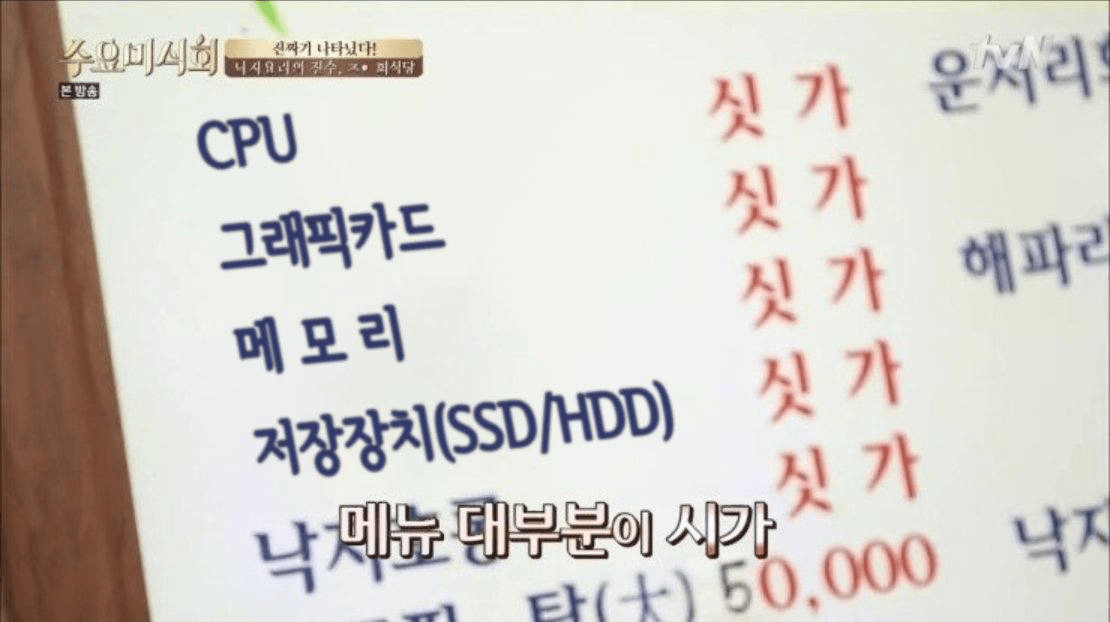 수요미식회
진짜가 나타났다!
낙지요리의 진수,
회식당
본 방송
tvN
CPU 싯 가
그래픽카드 싯 가
메 모 리 싯 가
저장장치(SSD/HDD) 싯 가
싯 가
메뉴 대부분이 시가
탕(大) 50,000
해파리
낙지